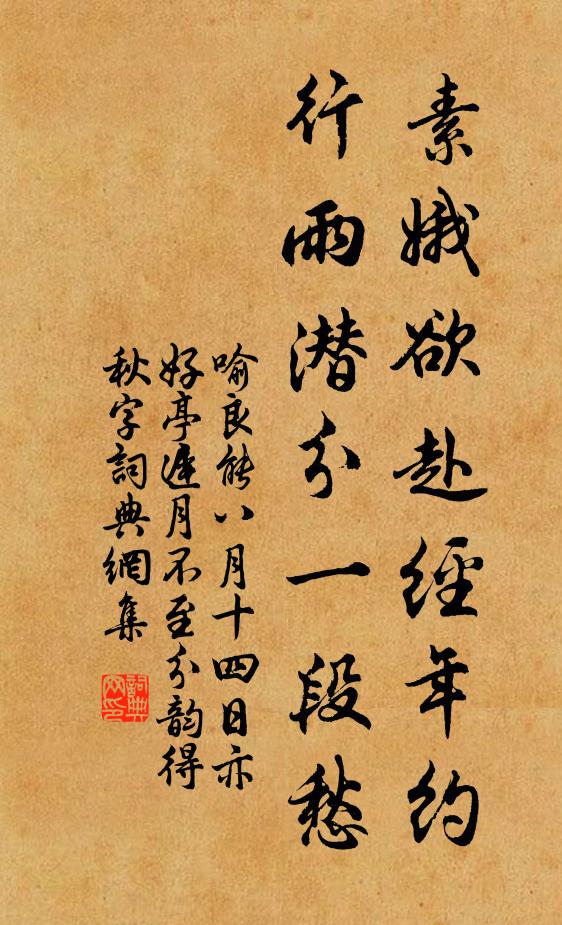 素娥欲赴經年約
行雨潜分一段愁
喻良能八月十四日亦
好亭遲月不至分韵得
秋字詞典網集
詞典網印